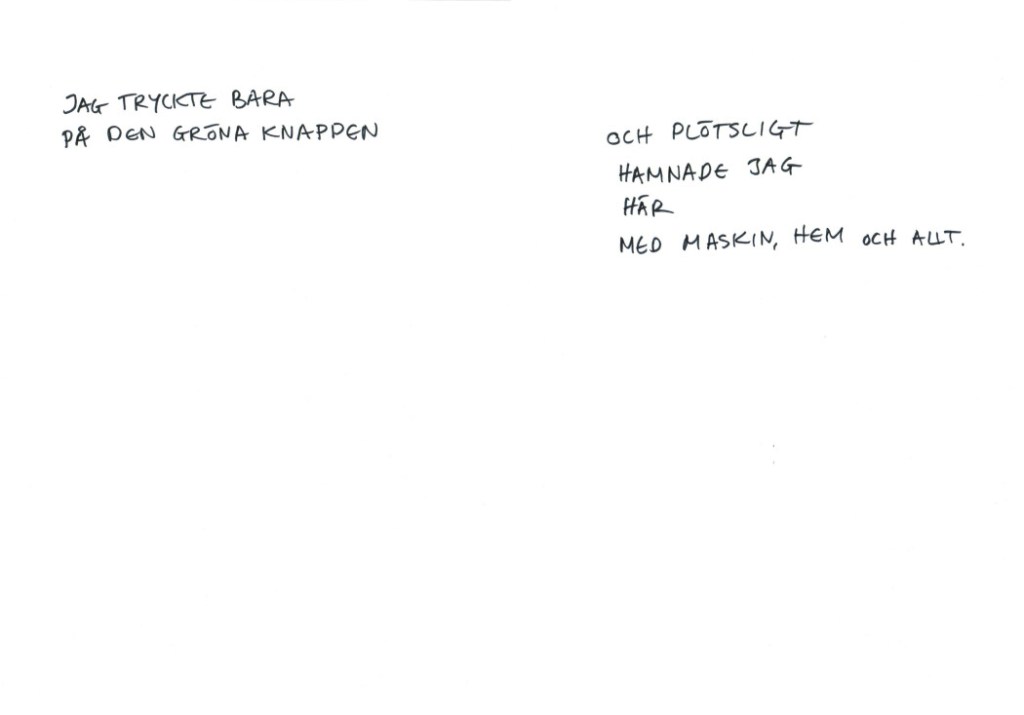 JAG TRYCKTE BARA
PÅ DEN GRÖNA KNAPPEN
OCH PLÖTSLIGT
HAMNADE JAG
HÄR
MED MASKIN, HEM OCH ALLT.